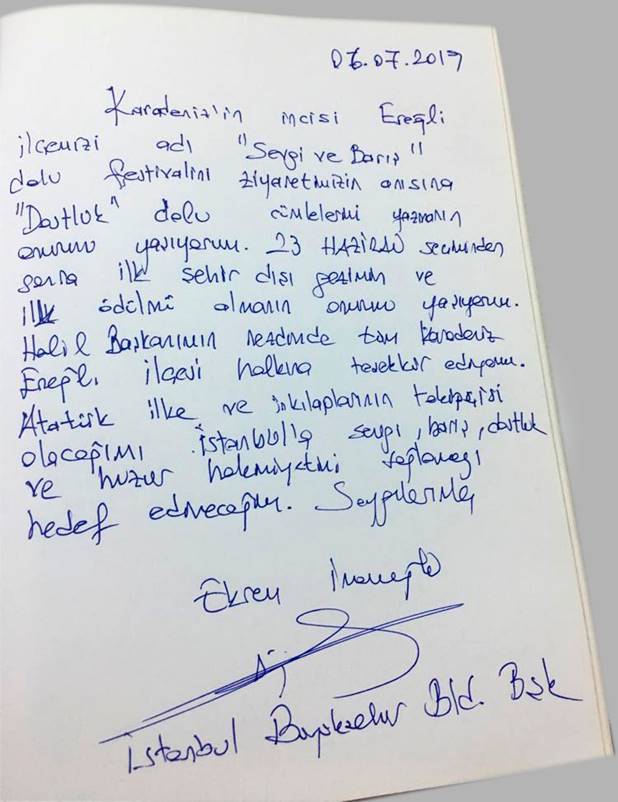 06.07.2019
Karadeniz'in incisi Ereğli
ilçemizi adı "Sevgi ve Barış"
dolu festivalini ziyaretimizin anısına
"Dostluk" dolu cümlelerimi yazmanın
onurunu yaşıyorum. 23 HAZİRAN seçiminden
sonra ilk şehir dışı gezimin ve
ilk ödülümü almanın onurunu yaşıyorum.
Halil Başkanımın nezdinde tüm Karadeniz
Ereğli ilçesi halkına teşekkür ediyorum.
Atatürk ilke ve inkılaplarının takipçisi
olacağımı İstanbulla sevgi, barış, dostluk
ve huzur hakimiyetini sağlamayı
hedef edineceğim. Saygılarımla
Ekrem İmamoğlu
İstanbul Büyükşehir Bld. Bşk